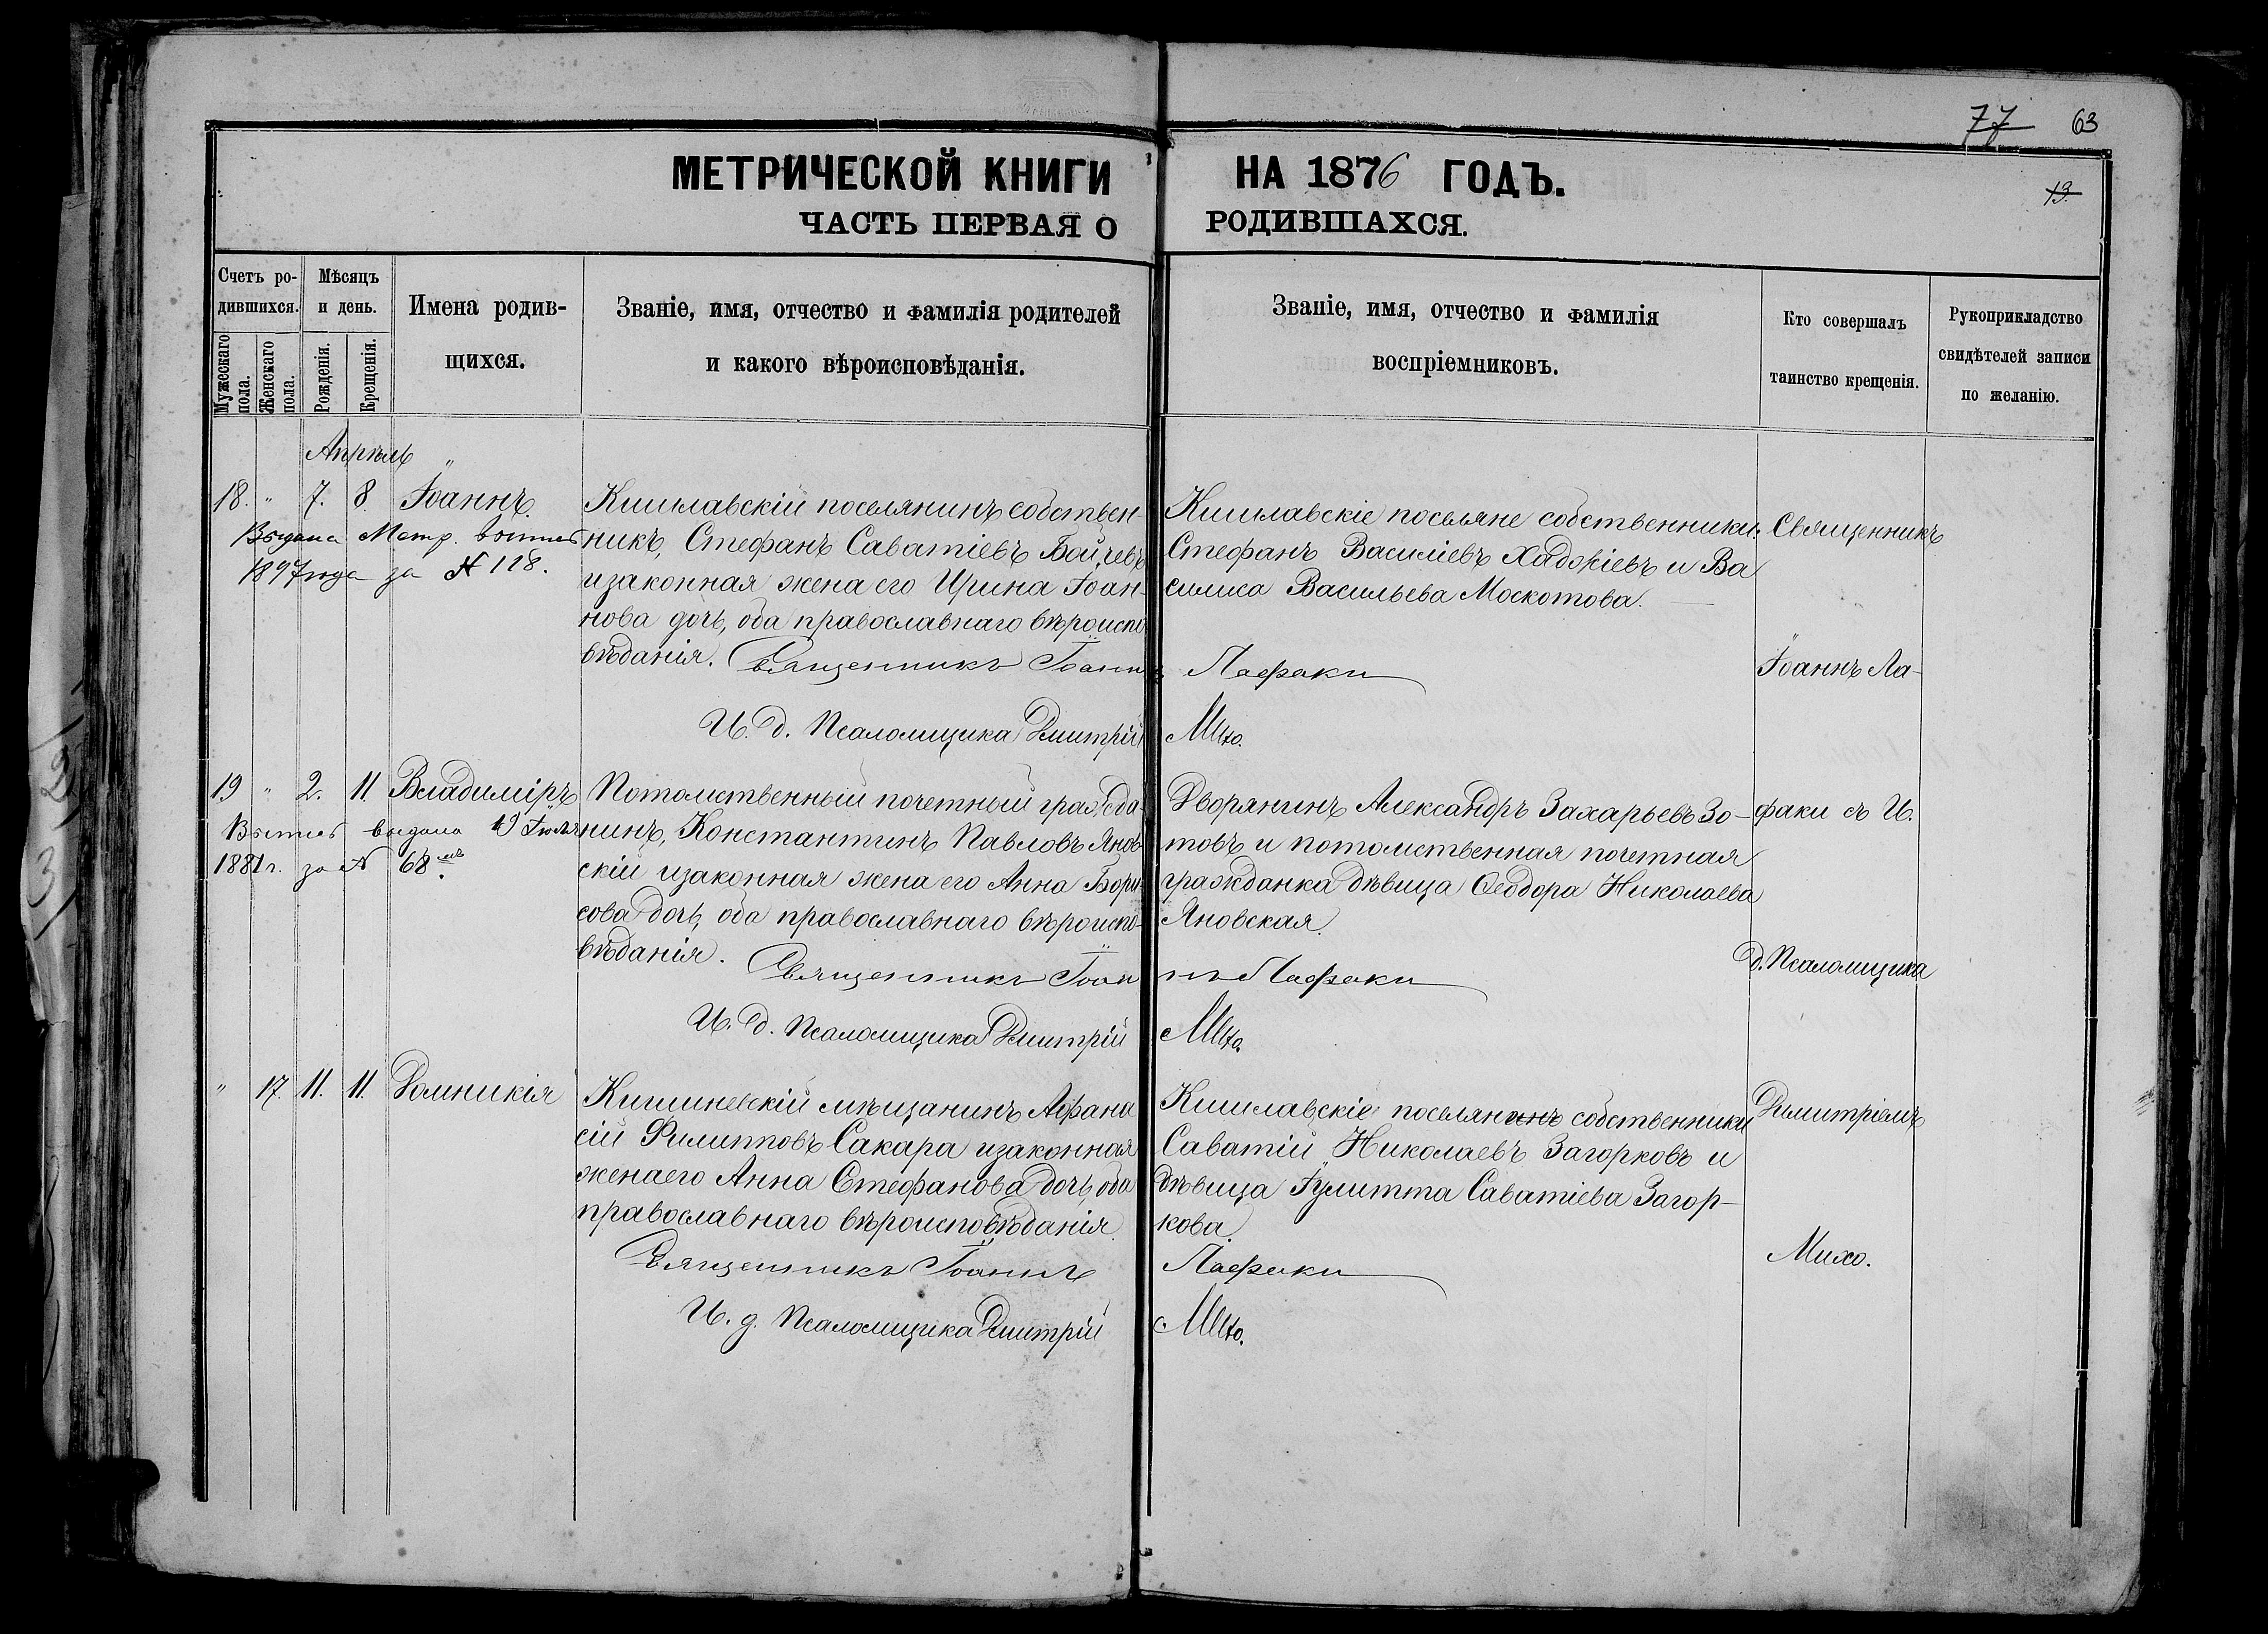 77 63
13.
МЕТРИЧЕСКОЙ КНИГИ НА 1876 ГОДЪ.
ЧАСТЬ ПЕРВАЯ О РОДИВШАХСЯ.
Счетъ родившихся.
Мужескаго пола.
Женскаго пола.
Мѣсяцъ и день.
Рожденія.
Крещенія.
Имена родив-
щихся.
Званіе, имя, отчество и фамилія родителей
и какого вѣроисповѣданія.
Званіе, имя, отчество и фамилія
воспріемниковъ.
Кто совершалъ
таинство крещенія.
Рукоприкладство
свидѣтелей записи
по желанію.
Апрѣль
18. " 7. 8. Іоаннъ.
Выдана Метр. выпись
1897 года за № 118.
Кишлавскій поселянинъ собствен-
никъ, Стефанъ Саватіевъ Бойчевъ
изаконная жена его Ирина Іоан-
нова дочь, оба православнаго вѣроиспо
вѣданія. Священникъ Іоаннъ Лафаки
И. д. Псаломщика Дмитрій Михо.
Кишлавскіе поселяне собственники:
Стефанъ Василіевъ Хаджіевъ и Ва
силиса Васильева Москотова.
Священникъ
Іоаннъ Ла-
19 " 2. 11. Владиміръ
Выпись выдана 19 Іюля
1881 г. за № 68.
Потомственный почетный гражда-
нинъ, Константинъ Павловъ Янов-
скій изаконная жена его Анна Бори-
сова дочь, оба православнаго вѣроиспо-
вѣданія. Священникъ Іоаннъ Лафаки
И. д. Псаломщика Дмитрій Михо.
Дворянинъ Александръ Захарьевъ Зо-
товъ и потомственная почетная
гражданка дѣвица Ѳеодора Николаева
Яновская.
факи съ И.
д. Псаломщика
" 17. 11. 11. Домникія
Кишиневскій мѣщанинъ Афана
сій Филипповъ Сакара изаконная
женаего Анна Стефанова дочь, оба
православнаго вѣроисповѣданія.
Священникъ Іоаннъ Лафаки
И. д. Псаломщика Дмитрій Михо.
Кишлавскіе поселянинъ собственники
Саватій Николаевъ Загорковъ и
дѣвица Іулитта Саватіева Загор-
кова.
Димитріемъ
Михо.